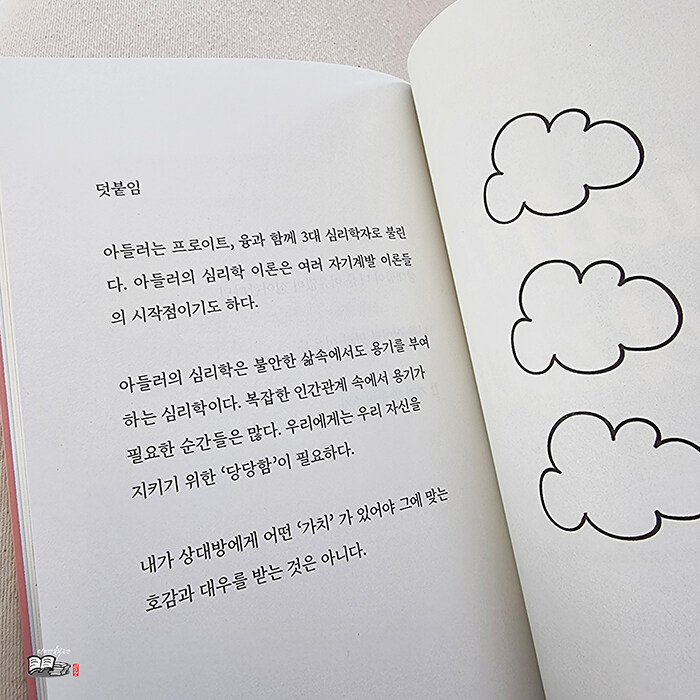 덧붙임
아들러는 프로이트, 융과 함께 3대 심리학자로 불린
다. 아들러의 심리학 이론은 여러 자기계발 이론들
의 시작점이기도 하다.
아들러의 심리학은 불안한 삶속에서도 용기를 부여
하는 심리학이다. 복잡한 인간관계 속에서 용기가
필요한 순간들은 많다. 우리에게는 우리 자신을
지키기 위한 ‘당당함’이 필요하다.
내가 상대방에게 어떤 ‘가치’ 가 있어야 그에 맞는
호감과 대우를 받는 것은 아니다.